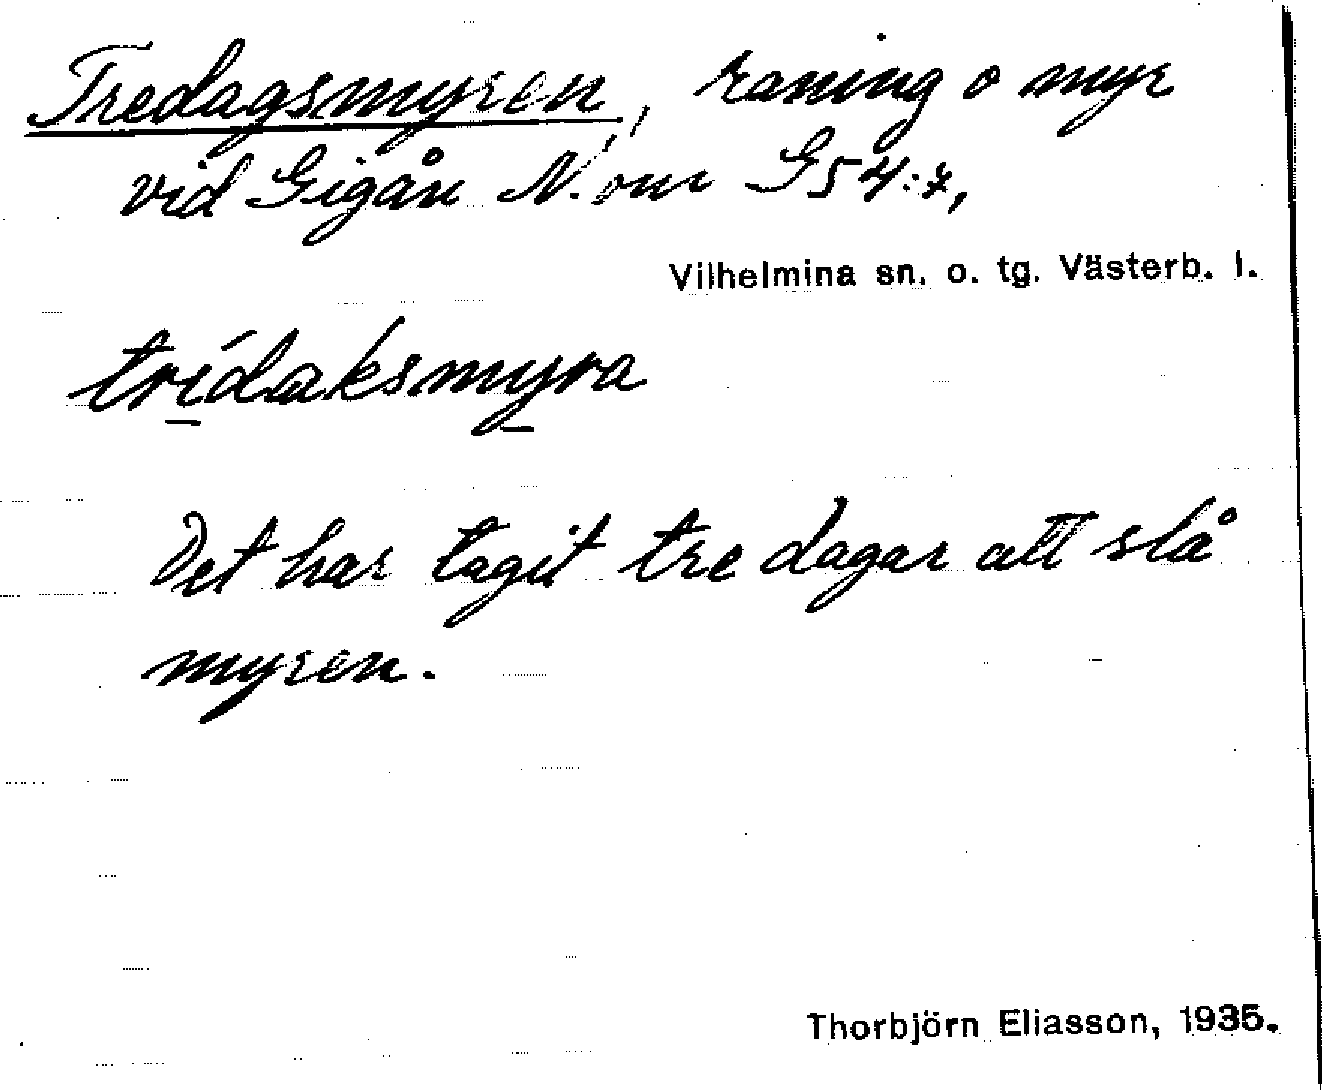 Tredagsmyren, raning o myr
vid Gigån N. om G54:7,
Vilhelmina sn. o. tg. Västerb. l.
trídaksmyra
Det har tagit tre dagar att slå
myren.
Thorbjörn Eliasson, 1935.